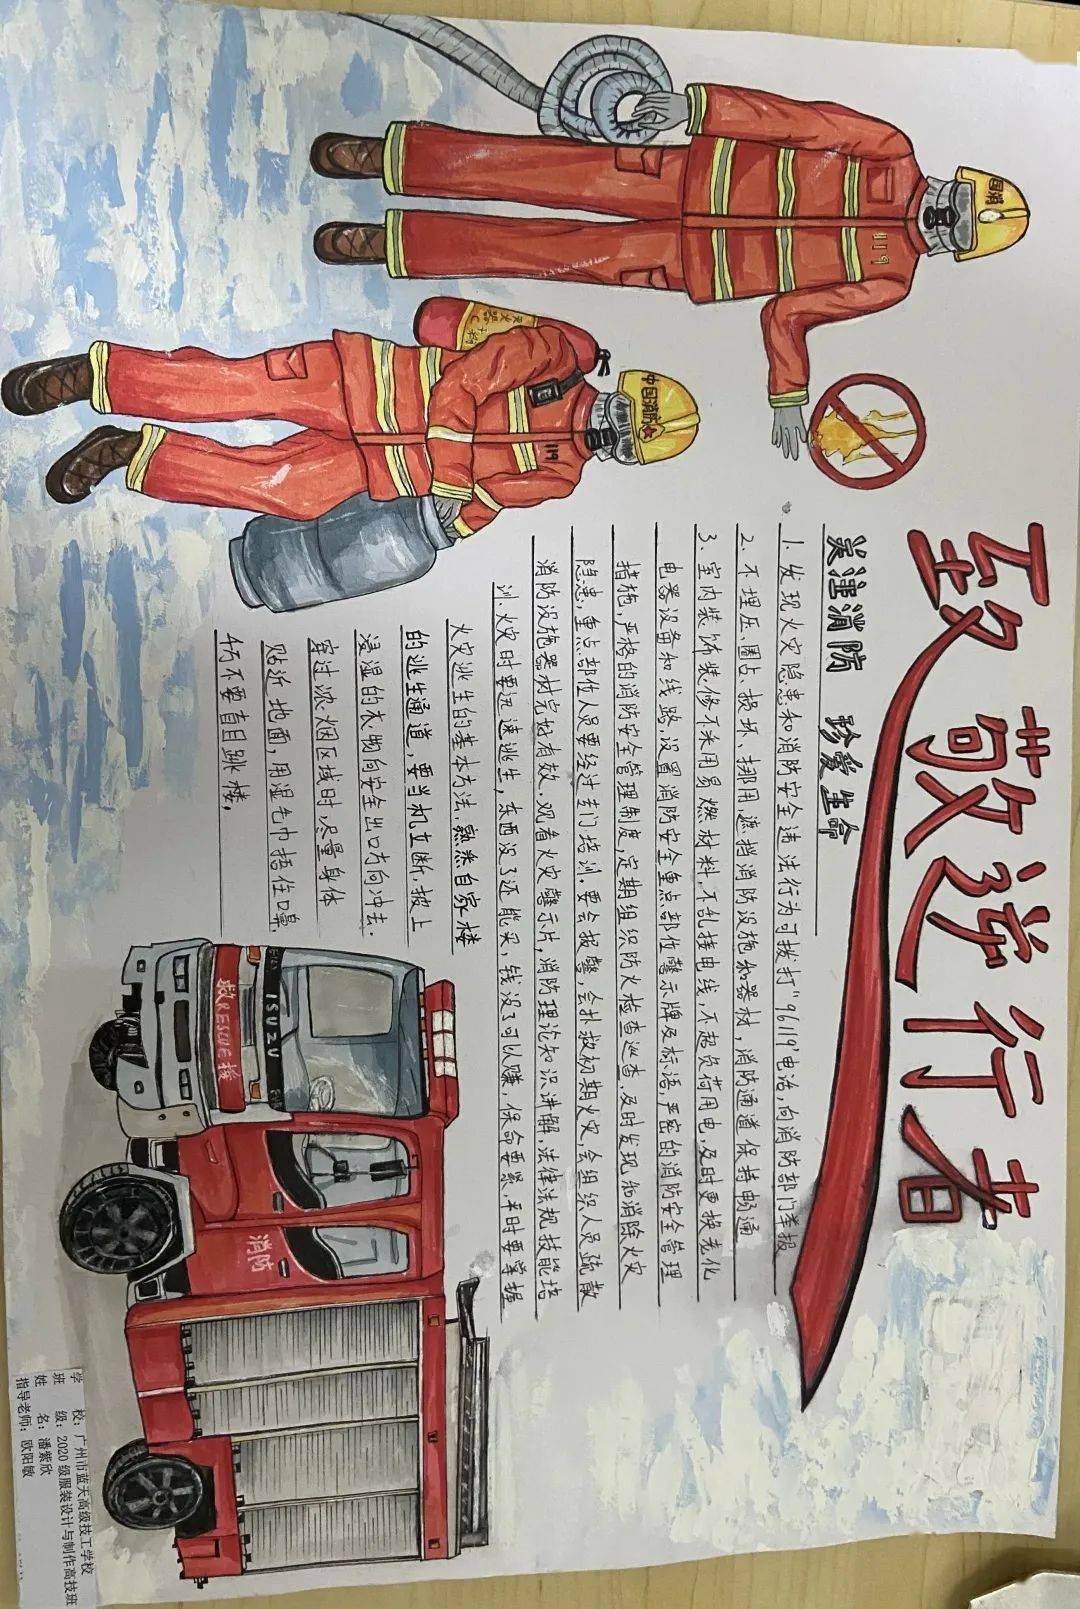 致敬逆行者
关注消防 珍爱生命
1.发现火灾隐患和消防安全违法行为可拨打"96119"电话,向消防部门举报
2.不埋压、圈占、损坏、挪用、遮挡消防设施和器材,消防通道保持畅通
3.室内装饰装修不采用易燃材料,不乱接电线,不超负荷用电,及时更换老化
电器设备和线路,设置消防安全重点部位警示牌及标语,严密的消防安全管理
措施,严格的消防安全管理制度,定期组织防火检查巡查,及时发现和消除火灾
隐患,重点部位人员要经过专门培训.要会报警,会扑救初期火灾,会组织人员疏散
消防设施器材完好有效.观看火灾警示片,消防理论知识讲解,法律法规,技能培
训.火灾时要迅速逃生,东西没了还能买,钱没了可以赚,保命要紧.平时要掌握
火灾逃生的基本方法,熟悉自家楼
的逃生通道,要当机立断,披上
浸湿的衣物向安全出口方向冲去.
穿过浓烟区域时,尽量身体
贴近地面,用湿毛巾捂住口鼻
千万不要盲目跳楼.
国消
119
中国消防
119
灭火器
ISUZU
救RESCUE援
消防
学 校:广州市蓝天高级技工学校
班 级:2020级服装设计与制作高技班
姓 名:潘紫欣
指导老师:欧阳敏